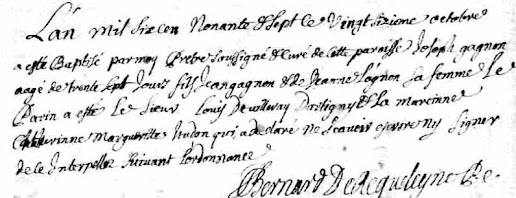 L'an mil six cen Nonante & sept le vingt sixieme octobre
a esté Baptisé par moy Prêtre soussigné & Curé de cette paroisse Joseph gagnon
aagé de trente sept Jours fils Jean gagnon & de Jeanne Loignon sa femme Le
Parin a esté Le sieur Louis de Dartigny & la mareinne
Marguerite qui a declaré ne scavoir escrire ny signer
de ce Interpellée suivant Lordonnance
Bernard De Requeleyne